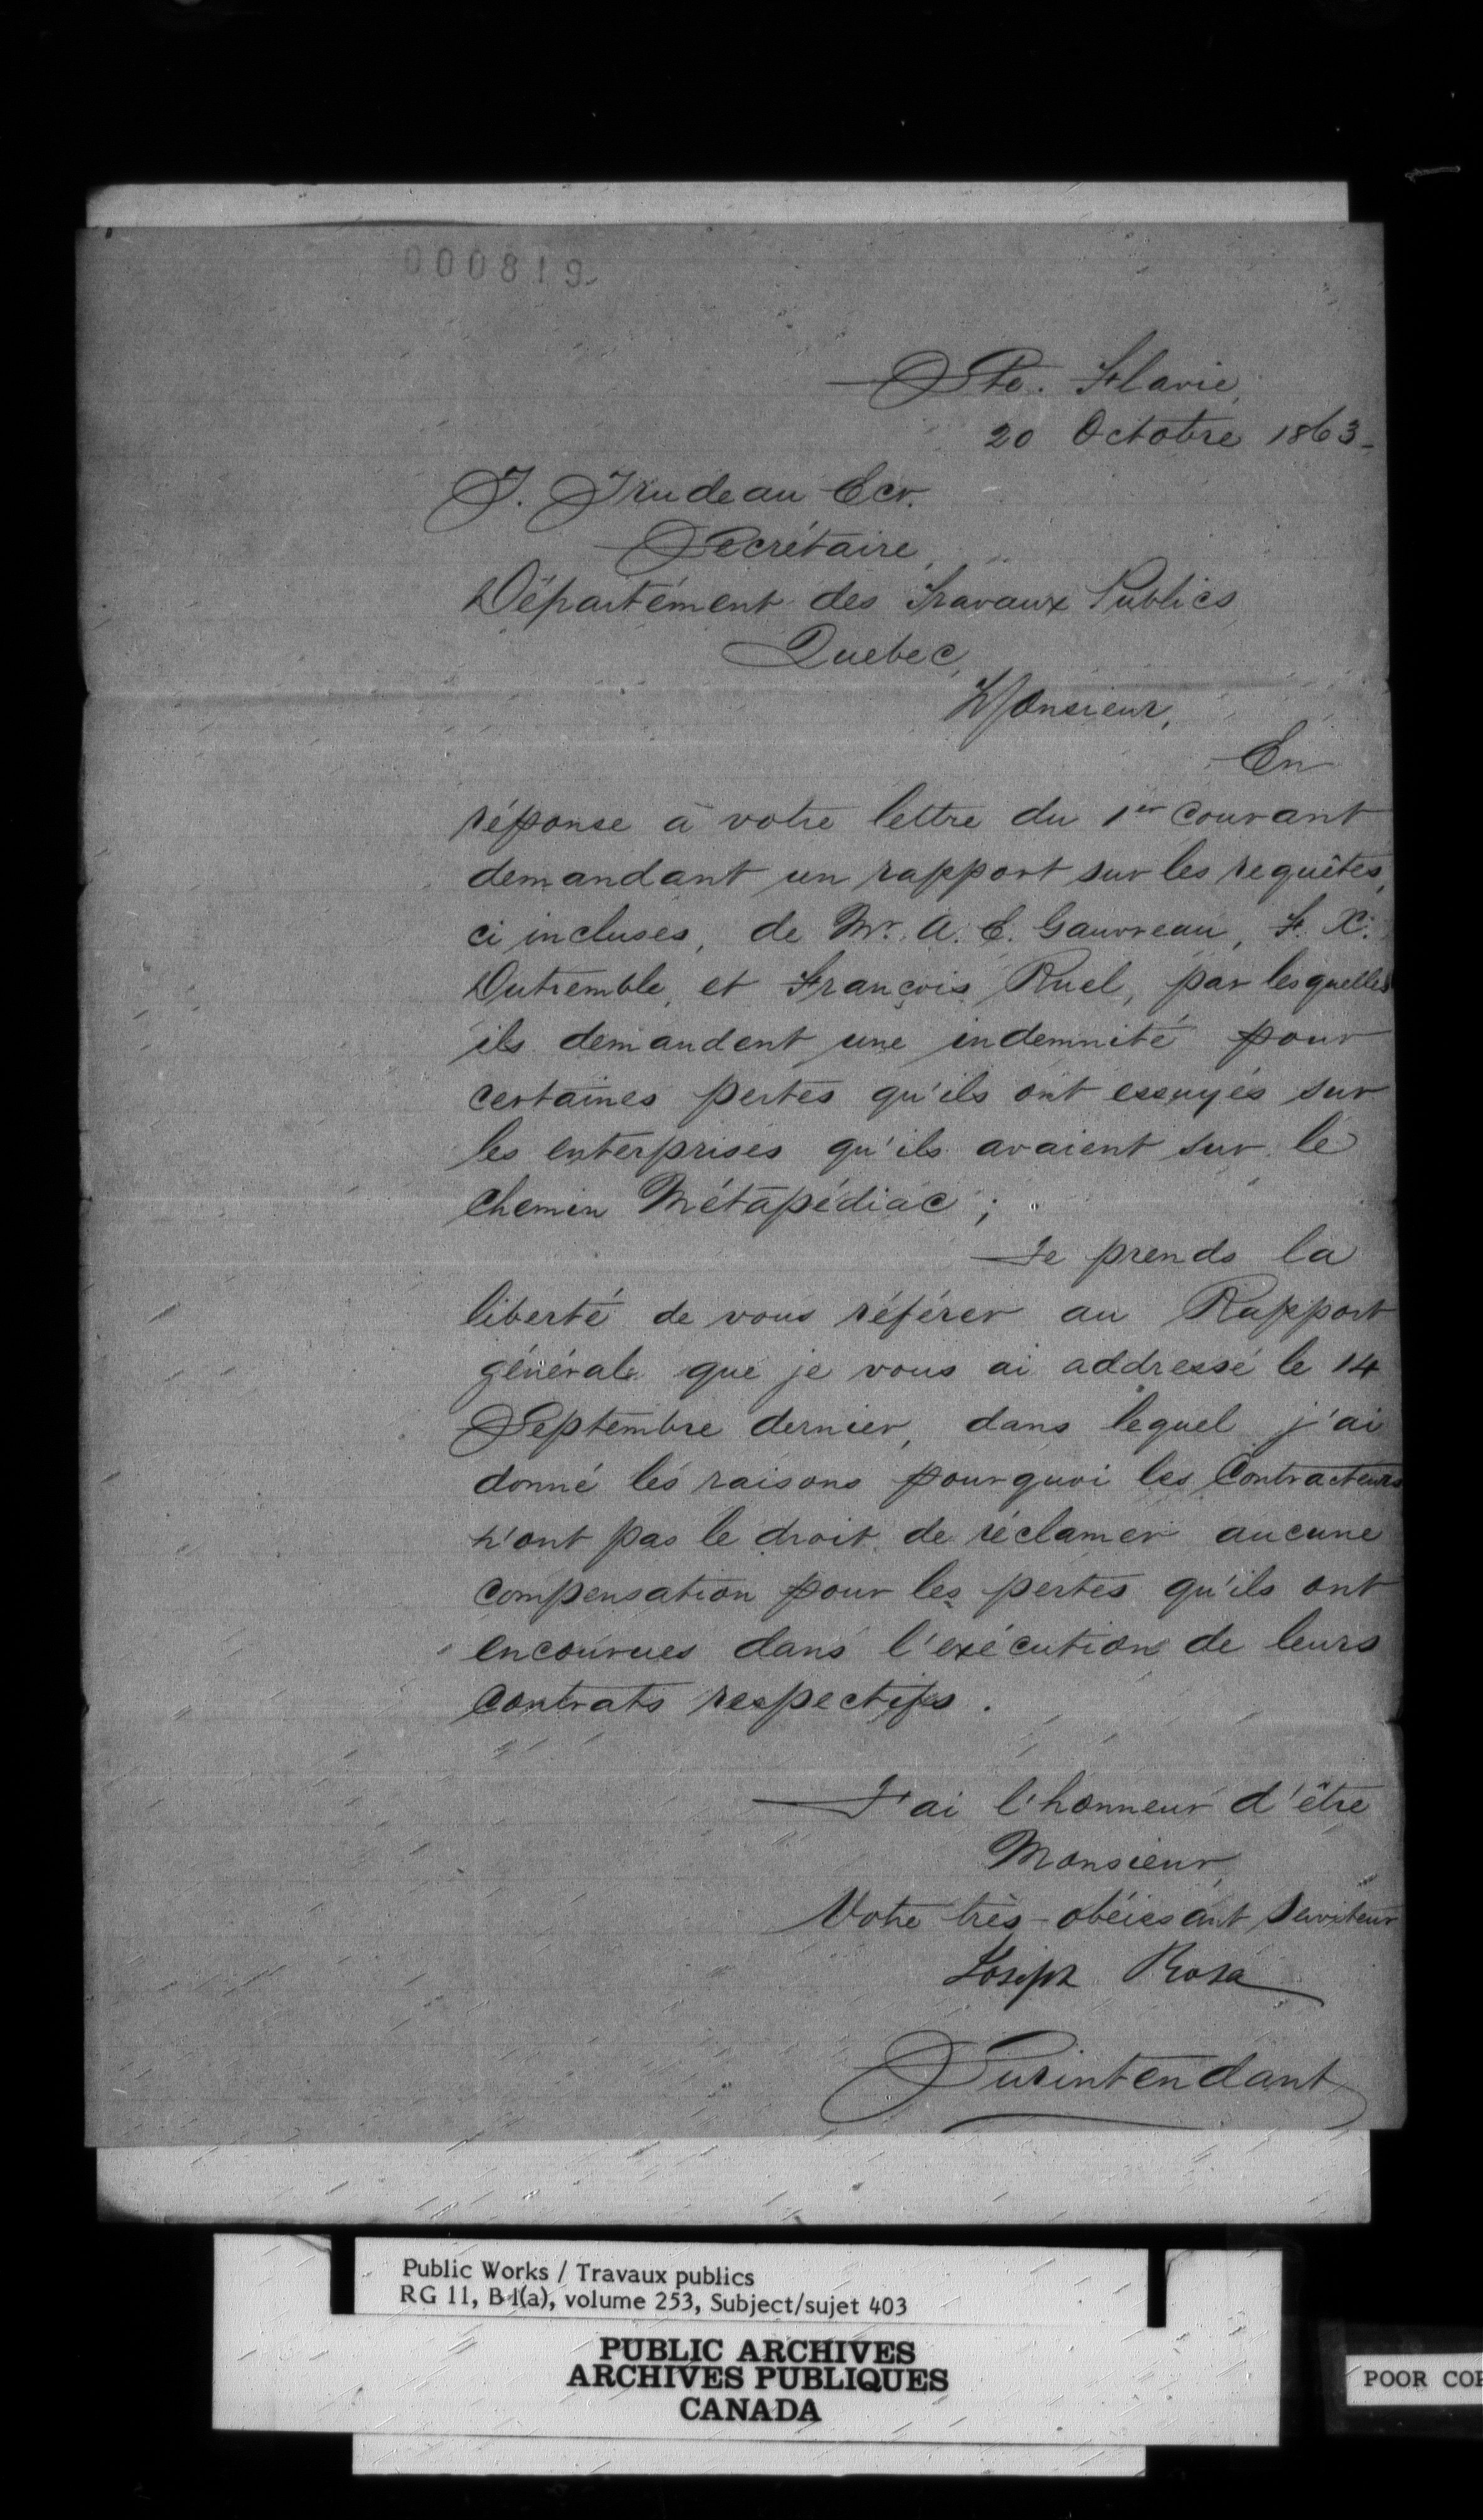 000819
Ste. Flavie,
20 Octobre 1863-
T. Trudeau Ecr.
Secrétaire,
Département des Travaux Publics
Quebec,
Monsieur,
En
réponse à votre lettre du 1er courant
demandant un rapport sur les requêtes,
ci incluses, de Mr. A. E. Gauvreau, F. X.
Dutremble, et François Ruel, par lesquelles
ils demandent une indemnité pour
certaines pertes qu'ils ont essuyés sur
les enterprises qu'ils avaient sur le
chemin Métapédiac;
Je prends la
liberté de vous référer au Rapport
général que je vous ai addressé le 14
Septembre dernier, dans lequel j'ai
donné les raisons pourquoi les Contracteurs
n'ont pas le droit de réclamer aucune
compensation pour les pertes qu'ils ont
encourues dans l'exécution de leurs
contrats respectifs.
J'ai l'honneur d'être
Monsieur,
Votre très-obéissant Serviteur
Joseph Rosa
Surintendant
Public Works / Travaux publics
RG 11, B1(a), volume 253, Subject/sujet 403
PUBLIC ARCHIVES
ARCHIVES PUBLIQUES
CANADA
POOR COP